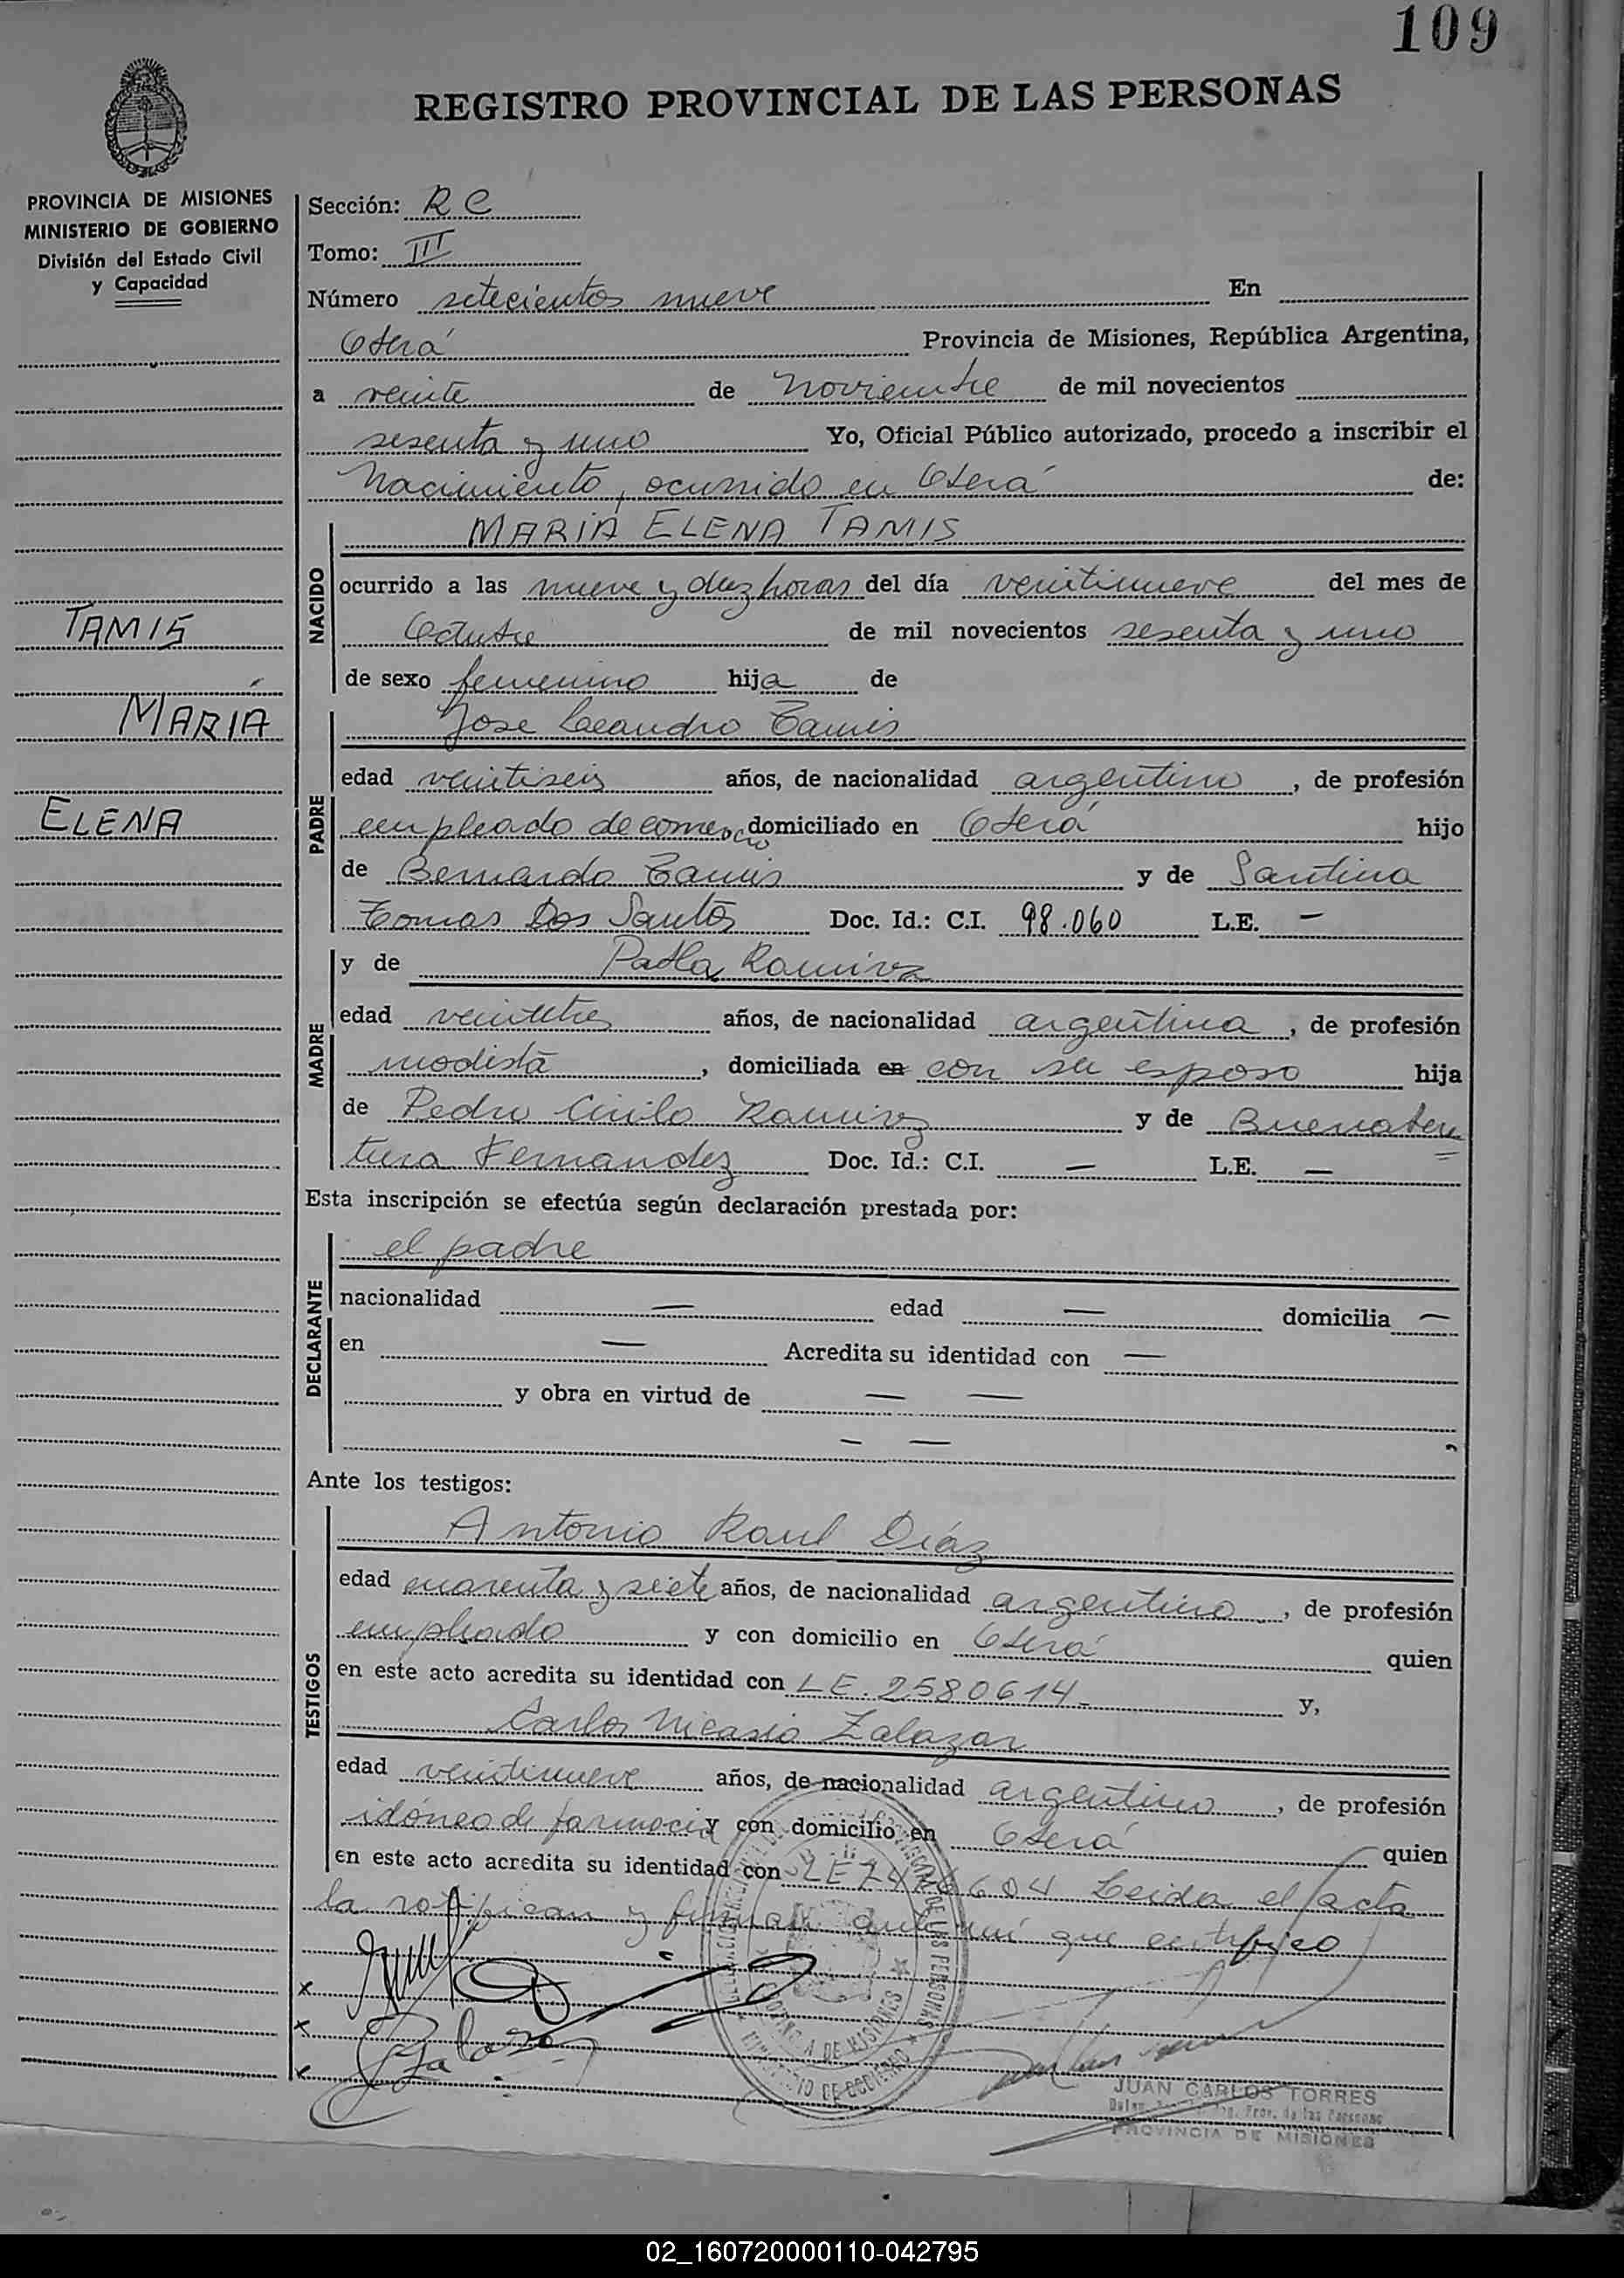 109
REGISTRO PROVINCIAL DE LAS PERSONAS
PROVINCIA DE MISIONES
MINISTERIO DE GOBIERNO
División del Estado Civil
y Capacidad
TAMIS
MARIA
ELENA
Sección: R C
Tomo: III
Número setecientos nueve En
Oberá Provincia de Misiones, República Argentina,
a veinte de Noviembre de mil novecientos
sesenta y uno Yo, Oficial Público autorizado, procedo a inscribir el
Nacimiento, ocurrido en Oberá de:
NACIDO
MARIA ELENA TAMIS
ocurrido a las nueve y diez horas del día veintinueve del mes de
Octubre de mil novecientos sesenta y uno
de sexo femenino hija de
PADRE
Jose Leandro Tamis
edad veintiseis años, de nacionalidad argentino, de profesión
empleado de comercio domiciliado en Oberá hijo
de Bernardo Tamis y de Santina
Tomas Dos Santos Doc. Id.: C.I. 98.060 L.E. —
MADRE
y de Pabla Ramirez
edad veintitres años, de nacionalidad argentina, de profesión
modista, domiciliada en con su esposo hija
de Pedro Cirilo Ramirez y de Buenaven
tura Fernandez Doc. Id.: C.I. — L.E. —
Esta inscripción se efectúa según declaración prestada por:
DECLARANTE
el padre
nacionalidad — edad — domicilia —
en — Acredita su identidad con —
y obra en virtud de — —
— — ,
Ante los testigos:
TESTIGOS
Antonio Raul Diáz
edad cuarenta y siete años, de nacionalidad argentino, de profesión
empleado y con domicilio en Oberá quien
en este acto acredita su identidad con L E. 2580614- y,
Carlos Nicasio Zalazar
edad veintinueve años, de nacionalidad argentino, de profesión
idóneo de farmacia y con domicilio en Oberá quien
en este acto acredita su identidad con LE Leida el acta
la ratifican y firman ante mí que certifico
x
x Zalazar
x
DE LAS PERSONAS
PROVINCIA DE MISIONES
MINISTERIO DE GOBIERNO
JUAN CARLOS TORRES
Prov. de las Personas
PROVINCIA DE MISIONES
02_160720000110-042795